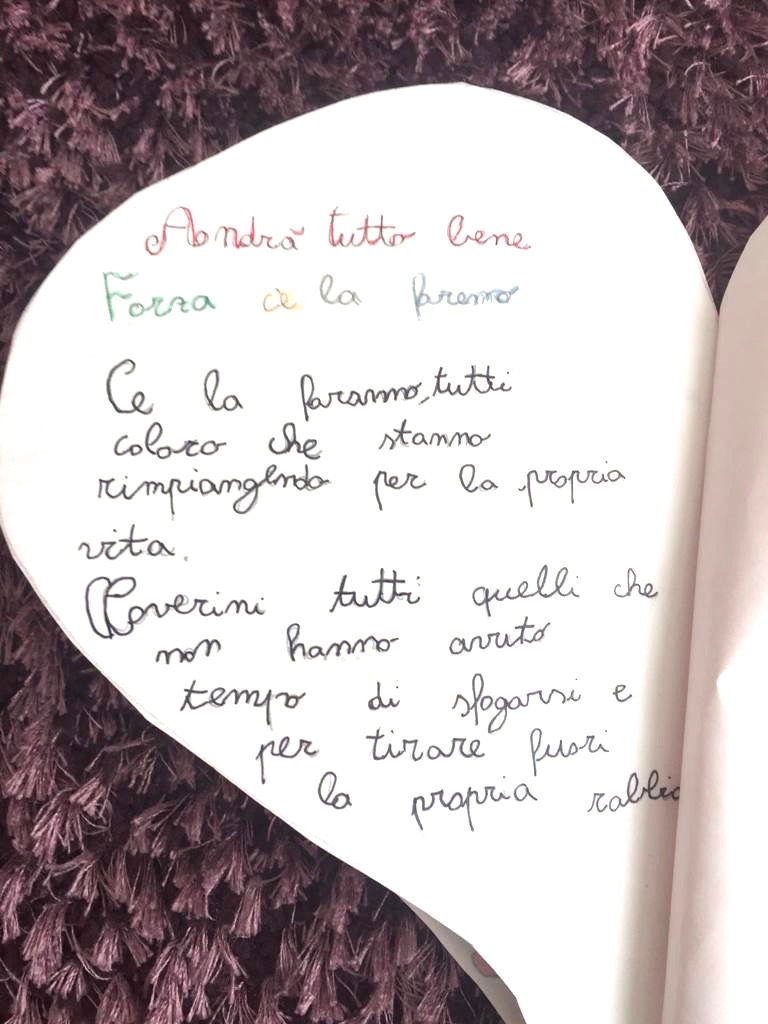 Andrà tutto bene
Forza ce la faremo
Ce la faranno, tutti
coloro che stanno
rimpiangendo per la propria
vita.
Poverini tutti quelli che
non hanno avuto
tempo di sfogarsi e
per tirare fuori
la propria rabbia